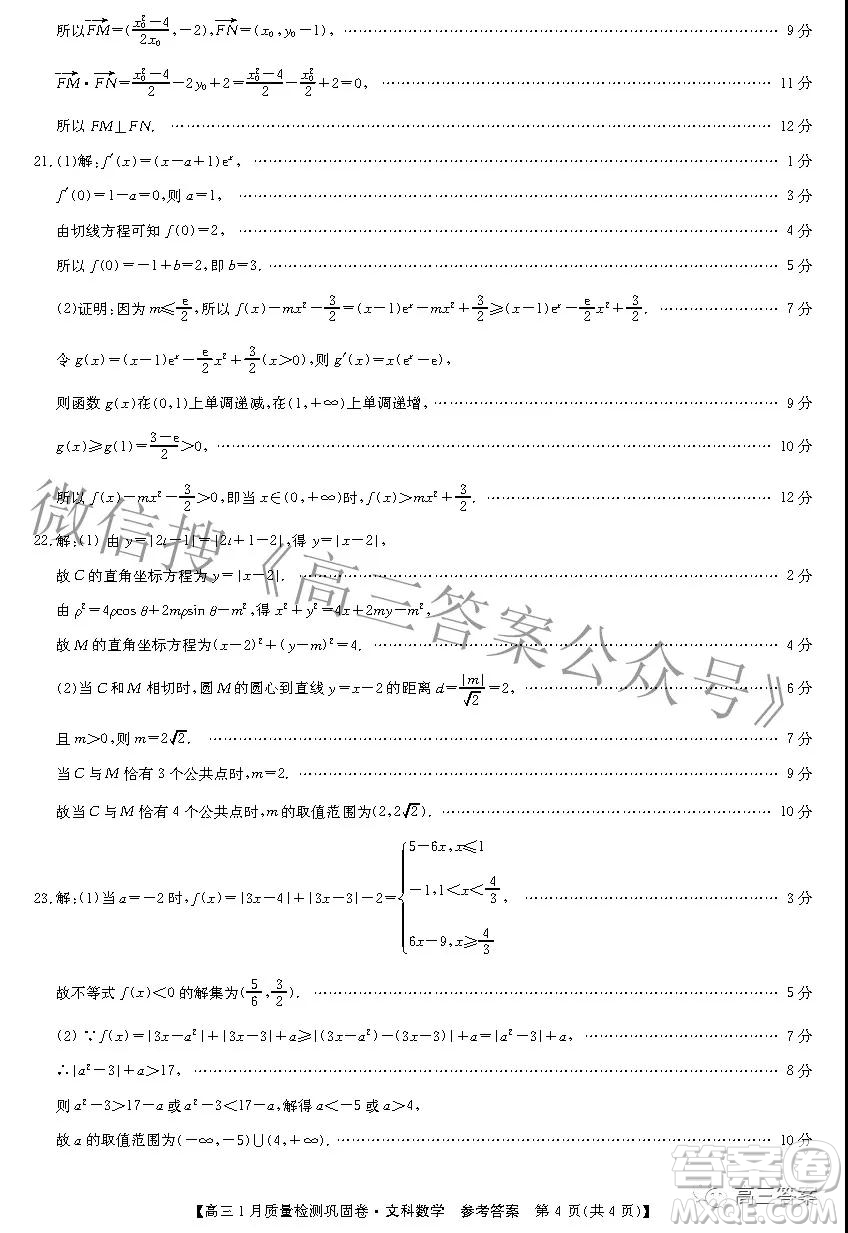 所以FM→=(x₀²-4/2x₀,-2),FN→=(x₀,y₀-1), 9分
FM→·FN→=x₀²-4/2-2y₀+2=x₀²-4/2-x₀²/2+2=0, 11分
所以FM⊥FN. 12分
21.(1)解:f′(x)=(x-a+1)eˣ, 1分
f′(0)=1-a=0,则a=1, 3分
由切线方程可知f(0)=2, 4分
所以f(0)=-1+b=2,即b=3. 5分
(2)证明:因为m≤e/2,所以f(x)-mx²-3/2=(x-1)eˣ-mx²+3/2≥(x-1)eˣ-e/2x²+3/2. 7分
令g(x)=(x-1)eˣ-e/2x²+3/2(x>0),则g′(x)=x(eˣ-e),
则函数g(x)在(0,1)上单调递减,在(1,+∞)上单调递增, 9分
g(x)≥g(1)=3-e/2>0, 10分
所以f(x)-mx²-3/2>0,即当x∈(0,+∞)时,f(x)>mx²+3/2. 12分
22.解:(1)由y=|2t-1|=|2t+1-2|,得y=|x-2|,
故C的直角坐标方程为y=|x-2|. 2分
由ρ²=4ρcos θ+2mρsin θ-m²,得x²+y²=4x+2my-m²,
故M的直角坐标方程为(x-2)²+(y-m)²=4. 4分
(2)当C和M相切时,圆M的圆心到直线y=x-2的距离d=|m|/√2=2, 6分
且m>0,则m=2√2. 7分
当C与M恰有3个公共点时,m=2. 9分
故当C与M恰有4个公共点时,m的取值范围为(2,2√2). 10分
23.解:(1)当a=-2时,f(x)=|3x-4|+|3x-3|-2={5-6x,x≤1
-1,1<x<4/3, 3分
6x-9,x≥4/3
故不等式f(x)<0的解集为(5/6,3/2). 5分
(2)∵f(x)=|3x-a²|+|3x-3|+a≥|(3x-a²)-(3x-3)|+a=|a²-3|+a, 7分
∴|a²-3|+a>17, 8分
则a²-3>17-a或a²-3<17-a,解得a<-5或a>4,
故a的取值范围为(-∞,-5)∪(4,+∞). 10分
【高三1月质量检测巩固卷·文科数学 参考答案 第4页(共4页)】
微信搜《高三答案公众号》
高三答案
答案圈
MXQE.COM